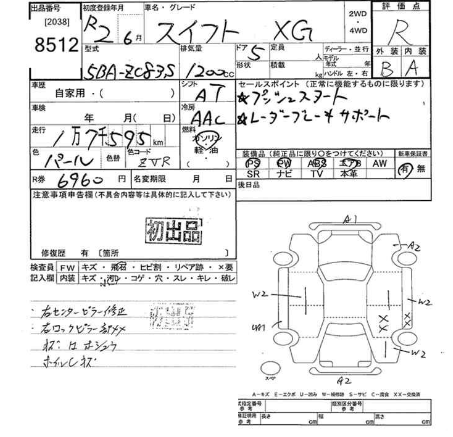 出品番号
[2038]
8512
初度登録年月
R2年6月
車名・グレード
スイフト XG
2WD・4WD
評価点
R
型式
5BA-ZC83S
排気量
1200cc
ドア
5
形状
定員
人
積載
kg
ディーラー・並行
モデル年式 年
ハンドル 左・右
外装 内装
B A
車歴
自家用・( )
シフト
AT
セールスポイント(正常に機能するものに限ります)
★プッシュスタート
★レーダーブレーキサポート
車検
年 月( )日
冷房
AAC
走行
1万7千595km
燃料
ガソリン
軽油
色
パール
色替
色コード
ZVR
装備品(純正品に限り○をつけてください)
PS PW ABS エアB AW
SR ナビ TV 本革
新車保証書
有・無
R券
6960円
名変期限 月 日
後日品
注意事項申告欄(不具合内容等は具体的に記入して下さい)
初出品
修復歴 有 [箇所 ]
検査員記入欄
FW キズ・飛石・ヒビ割・リペア跡・×要
内装 キズ・汚レ・コゲ・穴・スレ・キレ・破レ
初出品
・右センターピラー修正
・右ロックピラー
・ホイルCキズ
A1
A2
W2
W2
U1
W2
XX
A2
スペアー
A-キズ E-エクボ U-凹み W-補修跡 S-サビ C-腐食 XX-交換済
型式指定番号
参考
類別区分番号
参考
長さ cm
幅 cm
高さ cm